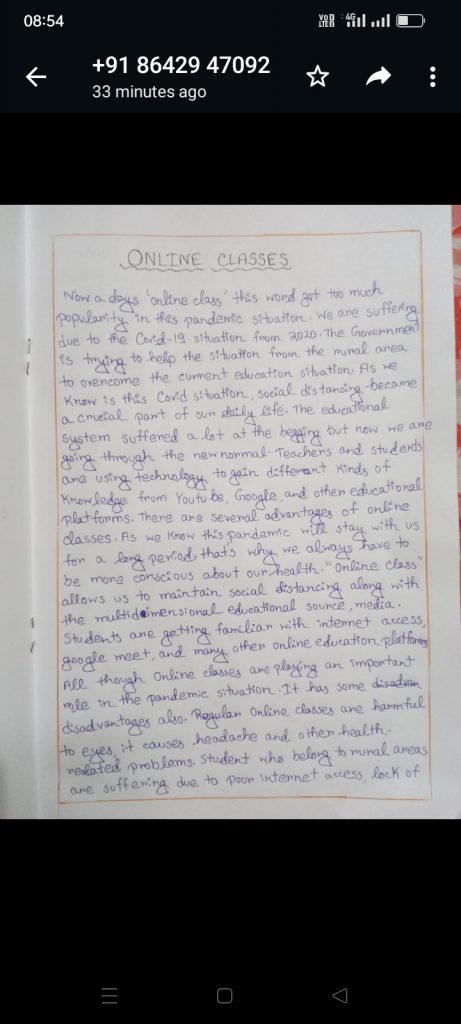 08:54
VoD LTEB 4G
+91 86429 47092
33 minutes ago
ONLINE CLASSES
Now a days 'online class' this word got too much
popularity in this pandemic situation. We are suffering
due to the Covid-19 situation from 2020. The Government
is trying to help the situation from the rural area
to overcome the current education situation. As we
know is this Covid situation, social distancing became
a crucial part of our daily life. The educational
system suffered a lot at the begging but now we are
going through the new normal. Teachers and students
are using technology to gain different kinds of
knowledge from Youtube, Google, and other educational
platforms. There are several advantages of online
classes. As we know this pandemic will stay with us
for a long period, that's why we always have to
be more conscious about our health. "Online class"
allows us to maintain social distancing along with
the multidimensional educational source, media.
Students are getting familiar with internet access,
google meet, and many other online education platforms
All though Online classes are playing an important
role in the pandemic situation. It has some disadvan
disadvantages also. Regular Online classes are harmful
to eyes, it causes headache and other health-
realated problems. Student who belong to rural areas
are suffering due to poor internet access, lack of